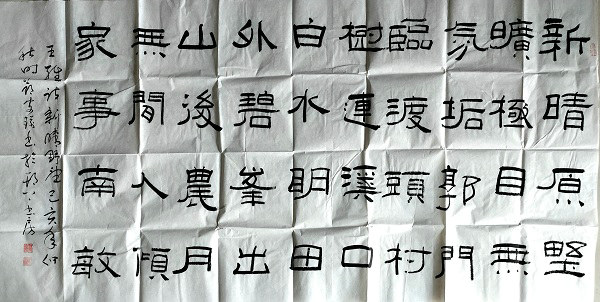 新晴原野
曠極目無
氛垢郭門
臨渡頭村
樹連溪口
白水明田
外碧峯出
山後農月
無閒人傾
家事南畝
王維詩新晴野望己亥年仲
秋時節李書於書房